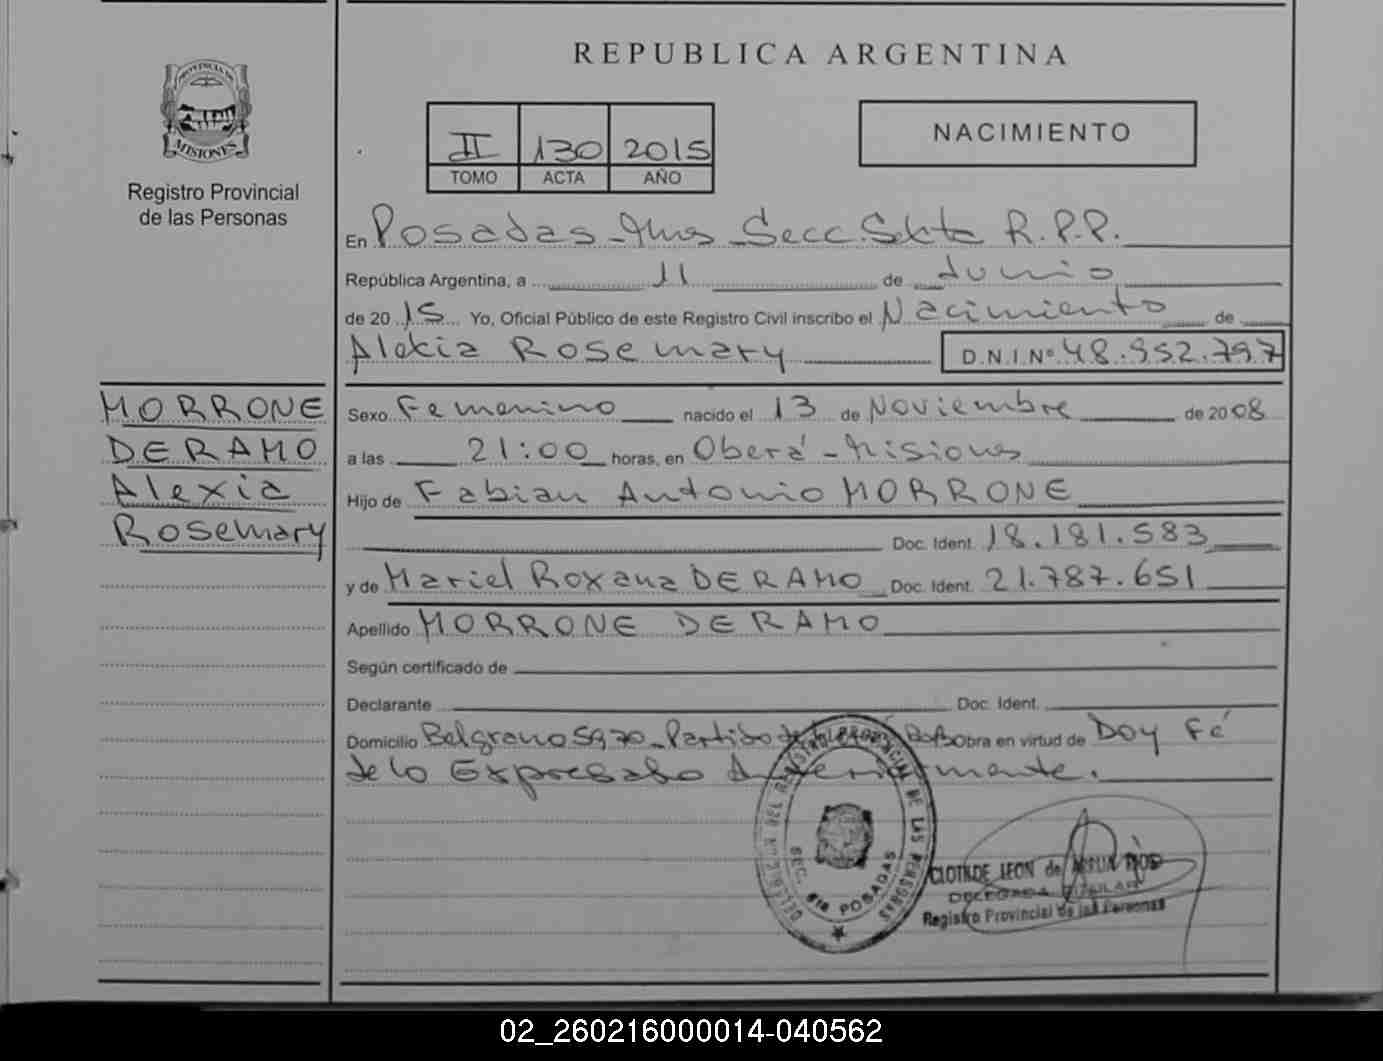 REPUBLICA ARGENTINA
PROVINCIA DE
MISIONES
Registro Provincial
de las Personas
II 130 2015
TOMO ACTA AÑO
NACIMIENTO
En Posadas - Mnes - Secc. Sexta R.P.P.
República Argentina, a 11 de Junio
de 2015 Yo, Oficial Público de este Registro Civil inscribo el Nacimiento de
Alexia Rosemary D.N.I.Nº 48.952.797
MORRONE
DERAMO
Alexia
Rosemary
Sexo Femenino nacido el 13 de Noviembre de 2008
a las 21:00 horas, en Oberá - Misiones
Hijo de Fabian Antonio MORRONE
Doc. Ident. 18.181.583
y de Mariel Roxana DERAMO Doc. Ident. 21.787.651
Apellido MORRONE DERAMO
Según certificado de
Declarante Doc. Ident.
Domicilio Belgrano 5970 - Partido de Bs As Obra en virtud de Doy Fé
de lo Expresado Anteriormente.
DEL REGISTRO PROVINCIAL DE LAS PERSONAS
SEC. 6ta POSADAS
CLOTILDE LEON de
DELEGADA TITULAR
Registro Provincial de las Personas
02_260216000014-040562